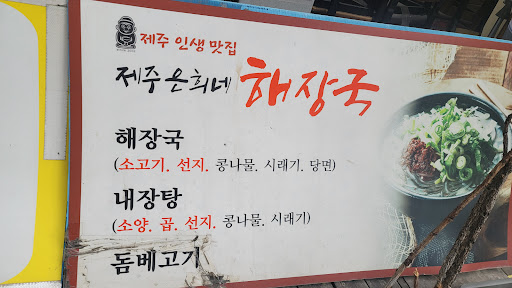 제주 인생 맛집
제주은희네 해장국
해장국
(소고기. 선지. 콩나물. 시래기. 당면)
내장탕
(소양. 곱. 선지. 콩나물. 시래기)
돔베고기